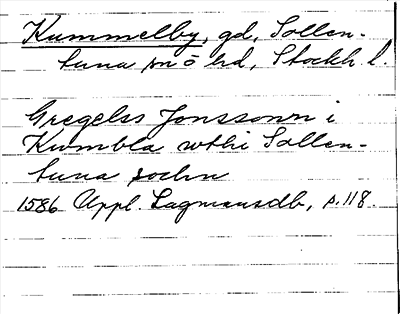 Kummelby, gd, Sollen-
tuna sn o hd, Stockh. l.
Gregelss Jonssonn i
Kwmbla wthi Sollen-
tuna sochn
1586 Uppl. Lagmansdb, s. 118.